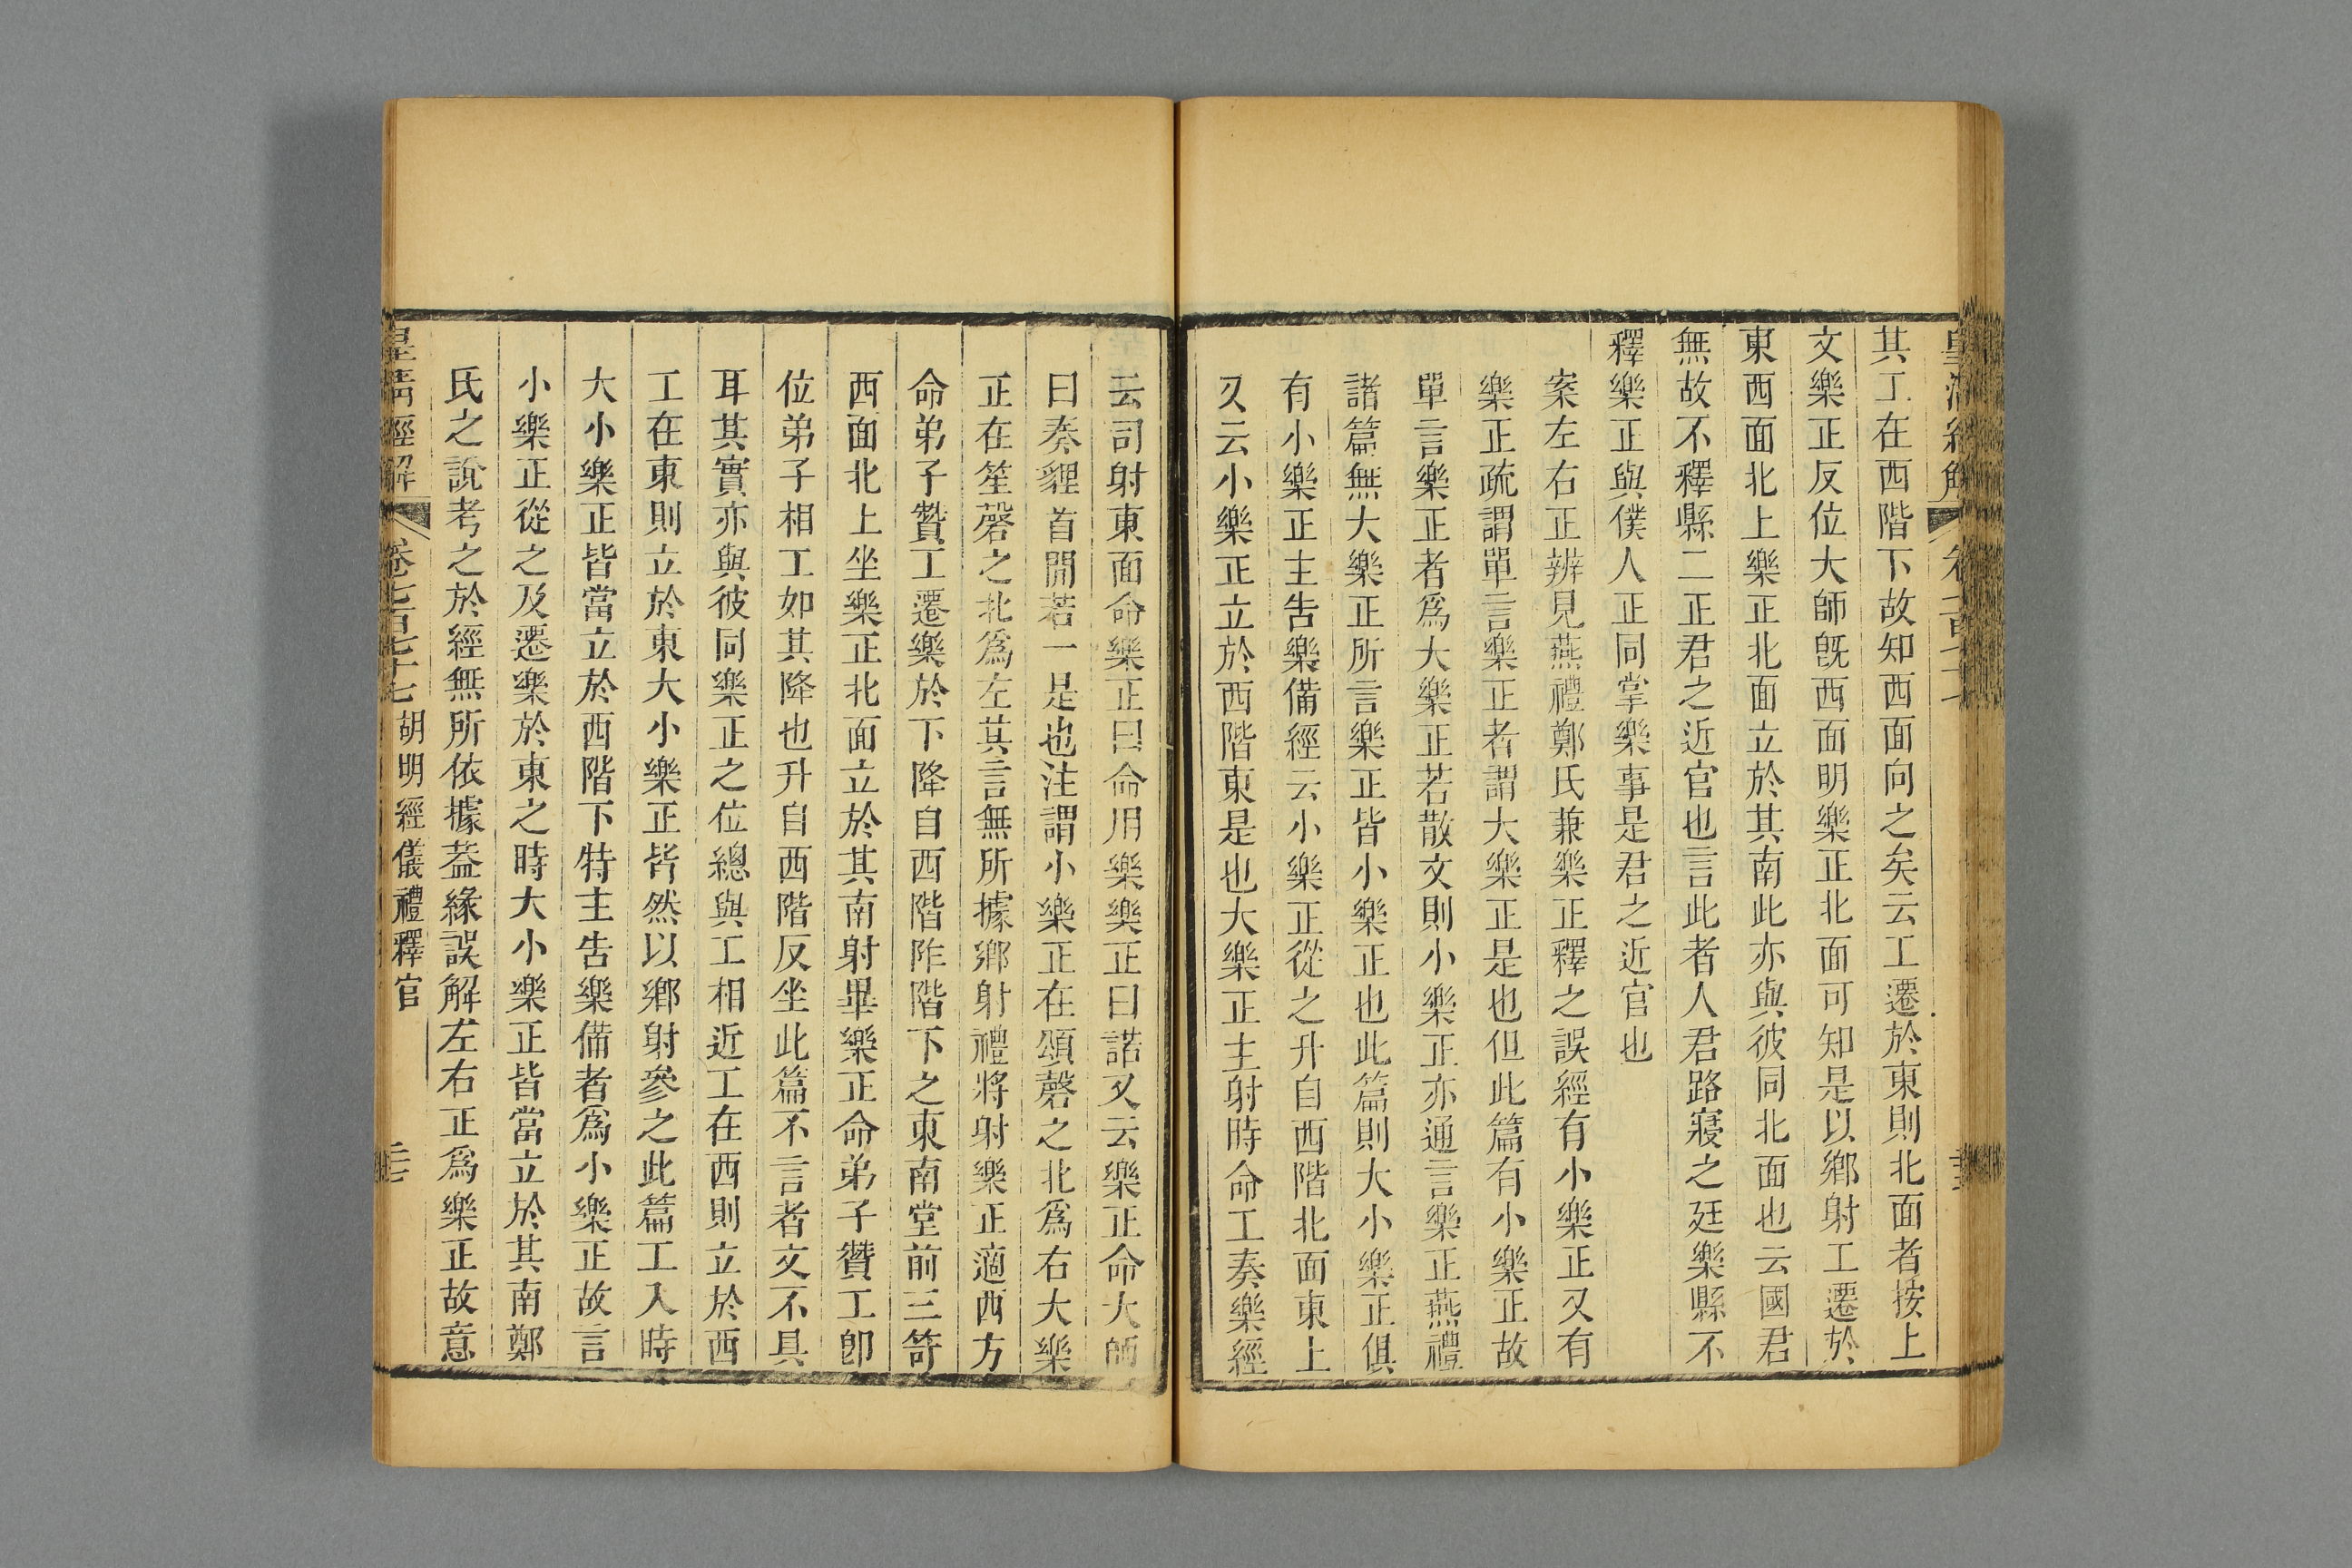 其工在西階下故知西面向之矣云工遷於東則北面者按上
文樂正反位大師旣西面明樂正北面可知是以鄉射工遷於
東西面北上樂正北面立於其南此亦與彼同北面也云國君
無故不釋縣二正君之近官也言此者人君路寢之廷樂縣不
釋樂正與僕人正同掌樂事是君之近官也
案左右正辨見燕禮鄭氏兼樂正釋之誤經有小樂正又有
樂正疏謂單言樂正者謂大樂正是也但此篇有小樂正故
單言樂正者爲大樂正若散文則小樂正亦通言樂正燕禮
諸篇無大樂正所言樂正皆小樂正也此篇則大小樂正俱
有小樂正主告樂備經云小樂正從之升自西階北面東上
又云小樂正立於西階東是也大樂正主射時命工奏樂經
云司射東面命樂正曰命用樂樂正曰諾又云樂正命大師
曰奏貍首閒若一是也注謂小樂正在頌磬之北爲右大樂
正在笙磬之北爲左其言無所據鄉射禮將射樂正適西方
命弟子贊工遷樂於下降自西階阼階下之東南堂前三笴
西面北上坐樂正北面立於其南射畢樂正命弟子贊工卽
位弟子相工如其降也升自西階反坐此篇不言者文不具
耳其實亦與彼同樂正之位總與工相近工在西則立於西
工在東則立於東大小樂正皆然以鄉射參之此篇工入時
大小樂正皆當立於西階下特主告樂備者爲小樂正故言
小樂正從之及遷樂於東之時大小樂正皆當立於其南鄭
氏之說考之於經無所依據葢緣誤解左右正爲樂正故意
皇淸經解 卷七百七十七 胡明經儀禮釋官